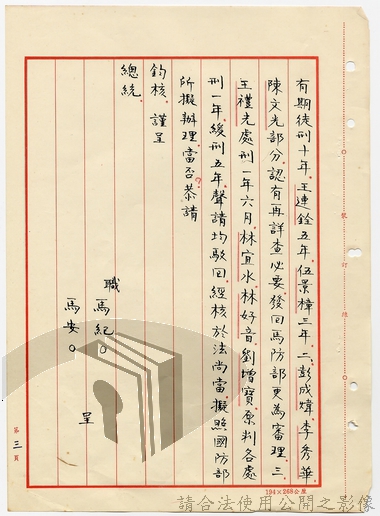 有期徒刑十年.王連銓五年.伍景樟三年.二彭成煒.李秀華
陳文光部分.認有再詳查必要.發回馬防部更為審理.三.
王禮光處刑一年六月.林宜水.林好音.劉增寶原判各處
刑一年.緩刑五年.聲請均駁回.經核於法尚當.擬照國防部
所擬辦理.當否?恭請
鈞核.謹呈
總統.
職 馬紀○
馬安○
呈
第三頁
裝 訂 線
194×268公厘
請合法使用公開之影像